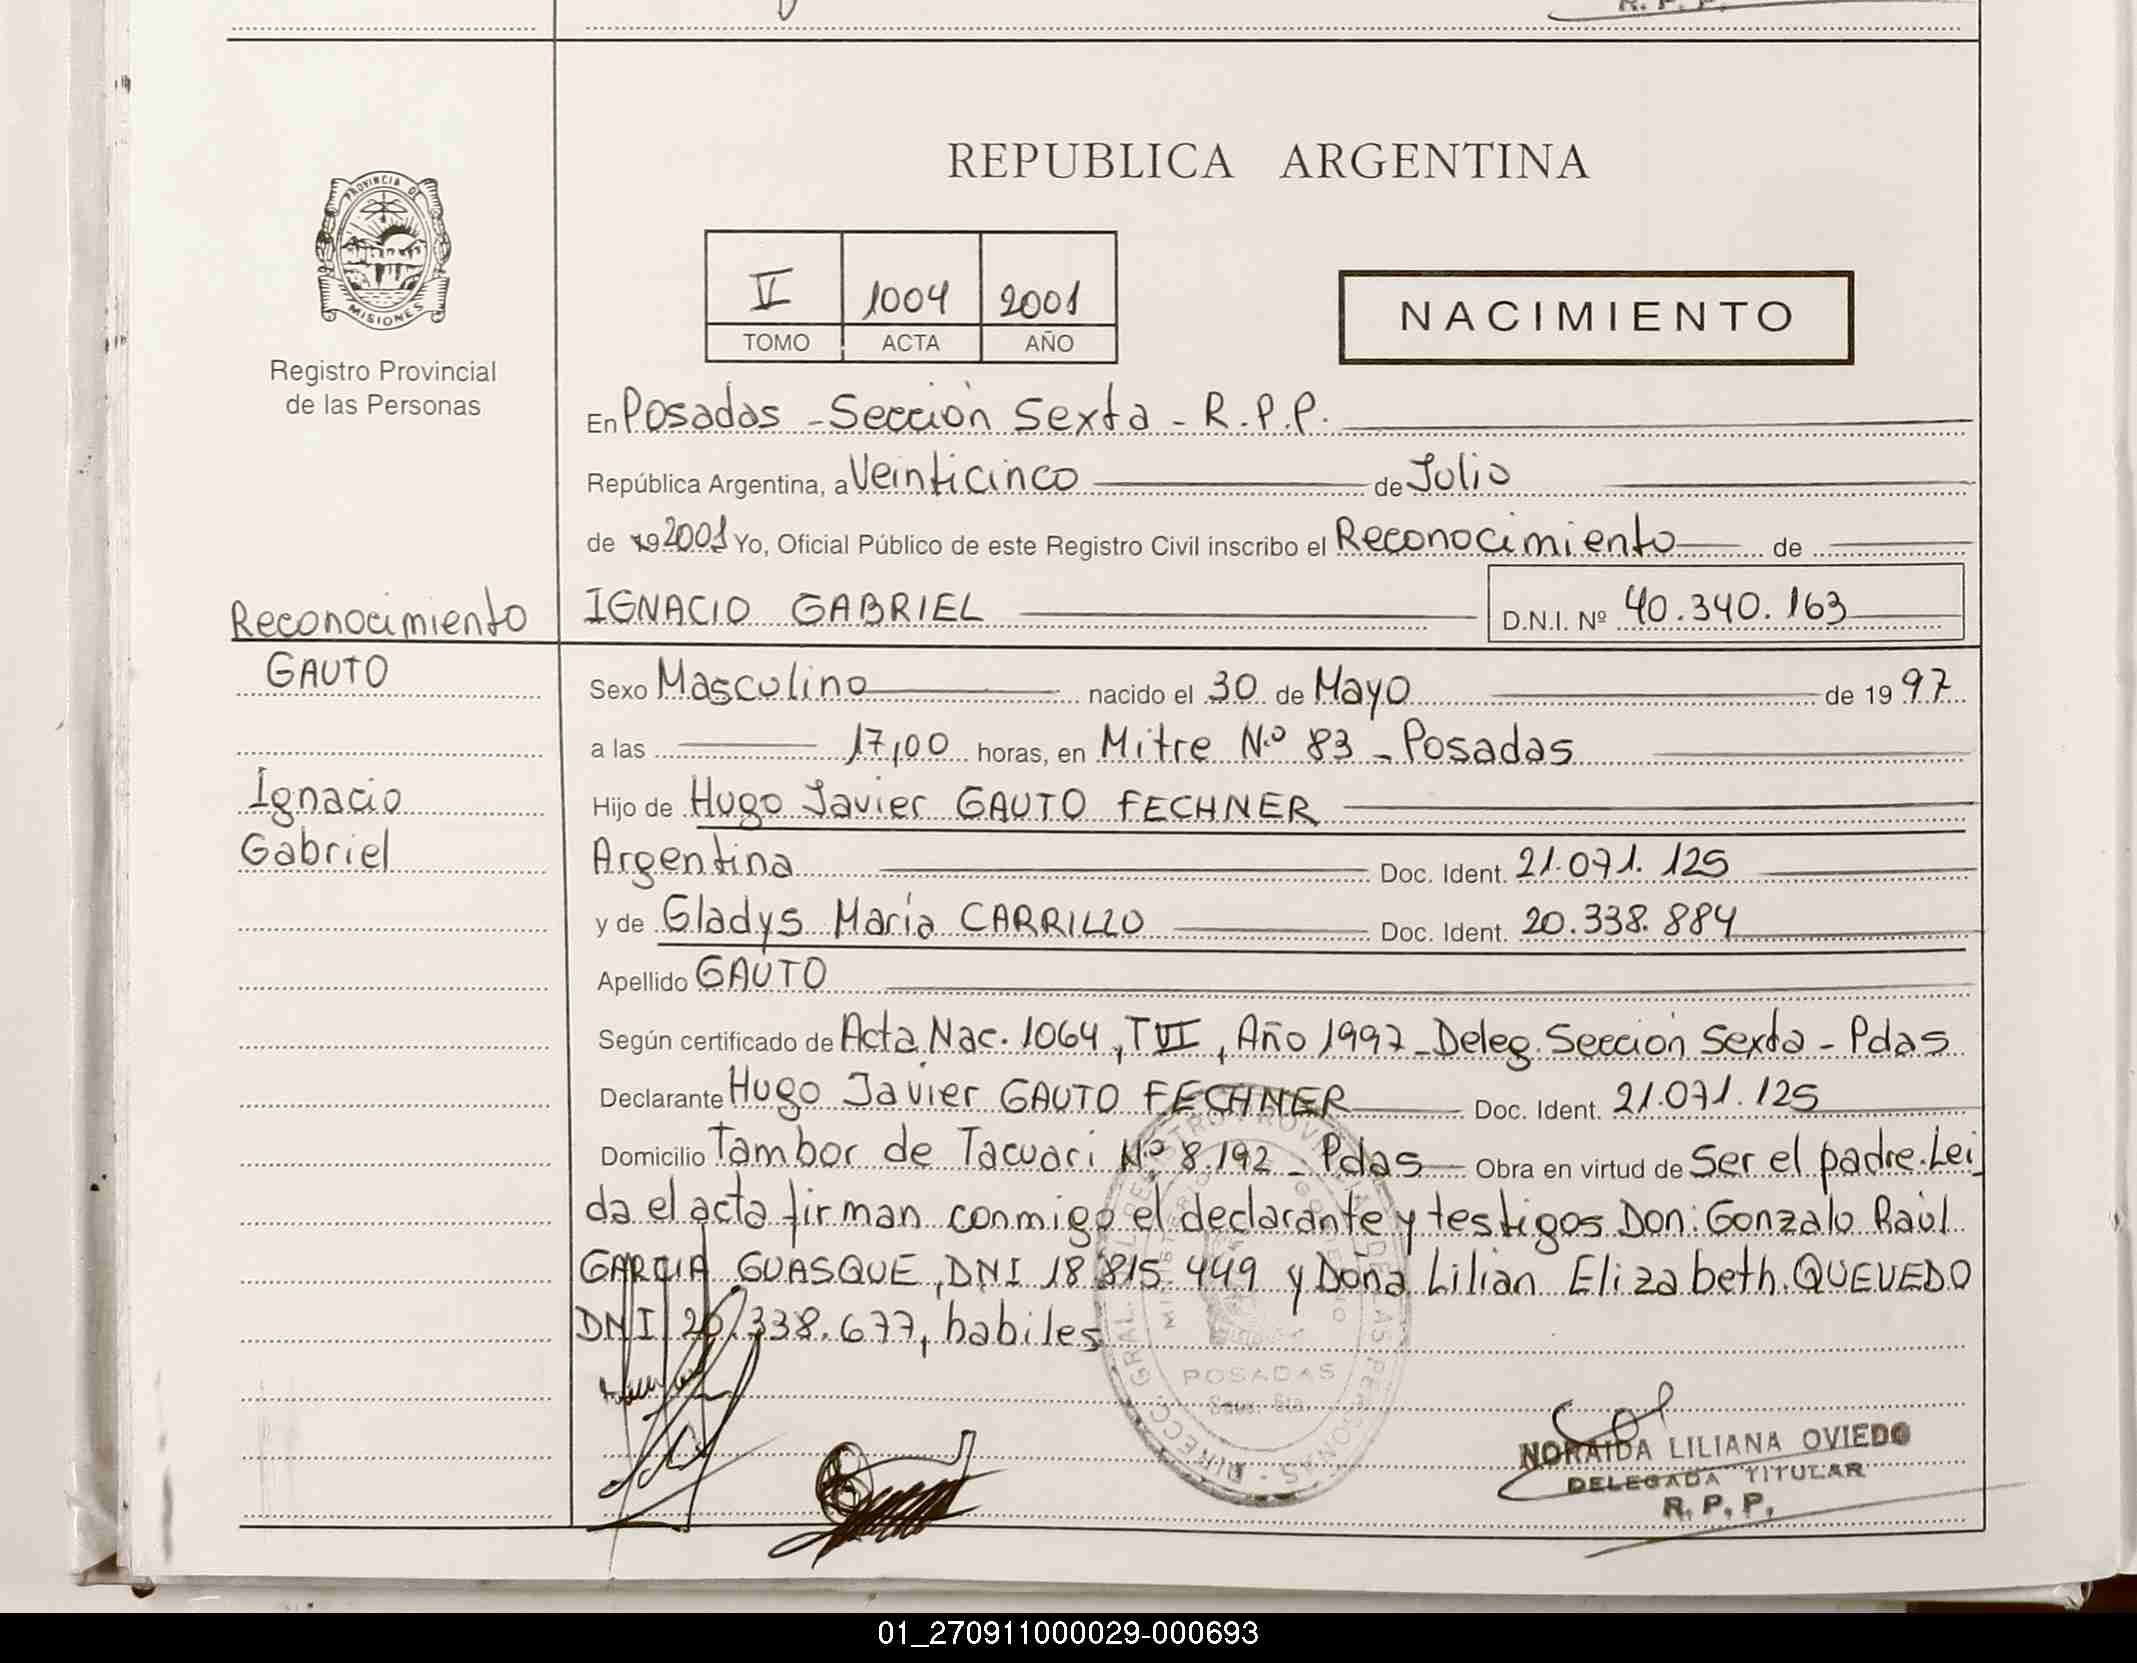 R. P. P.
PROVINCIA DE
MISIONES
Registro Provincial
de las Personas
REPUBLICA ARGENTINA
V 1004 2001
TOMO ACTA AÑO
NACIMIENTO
En Posadas - Sección Sexta - R.P.P.
República Argentina, a Veinticinco de Julio
de 19 2001 Yo, Oficial Público de este Registro Civil inscribo el Reconocimiento de
Reconocimiento
IGNACIO GABRIEL D.N.I. Nº 40.340.163
GAUTO
Sexo Masculino nacido el 30 de Mayo de 19 97
a las 17,00 horas, en Mitre N.º 83 - Posadas
Ignacio
Hijo de Hugo Javier GAUTO FECHNER
Gabriel
Argentina Doc. Ident. 21.071.125
y de Gladys María CARRILLO Doc. Ident. 20.338.884
Apellido GAUTO
Según certificado de Acta Nac. 1064, T VI, Año 1997 - Deleg. Sección Sexta - Pdas
Declarante Hugo Javier GAUTO FECHNER Doc. Ident. 21.071.125
Domicilio Tambor de Tacuarí Nº 8.192 - Pdas Obra en virtud de Ser el padre. Leí
da el acta firman conmigo el declarante y testigos Don: Gonzalo Raúl
GARCIA GUASQUE, DNI 18.815.449 y Doña Lilian Elizabeth QUEVEDO
DNI 20.338.677, habiles
DIRECC. GRAL. DEL REGISTRO PROVINCIAL DE LAS PERSONAS
MINISTERIO GOBIERNO
POSADAS
NORAIDA LILIANA OVIEDO
DELEGADA TITULAR
R. P. P.
01_270911000029-000693